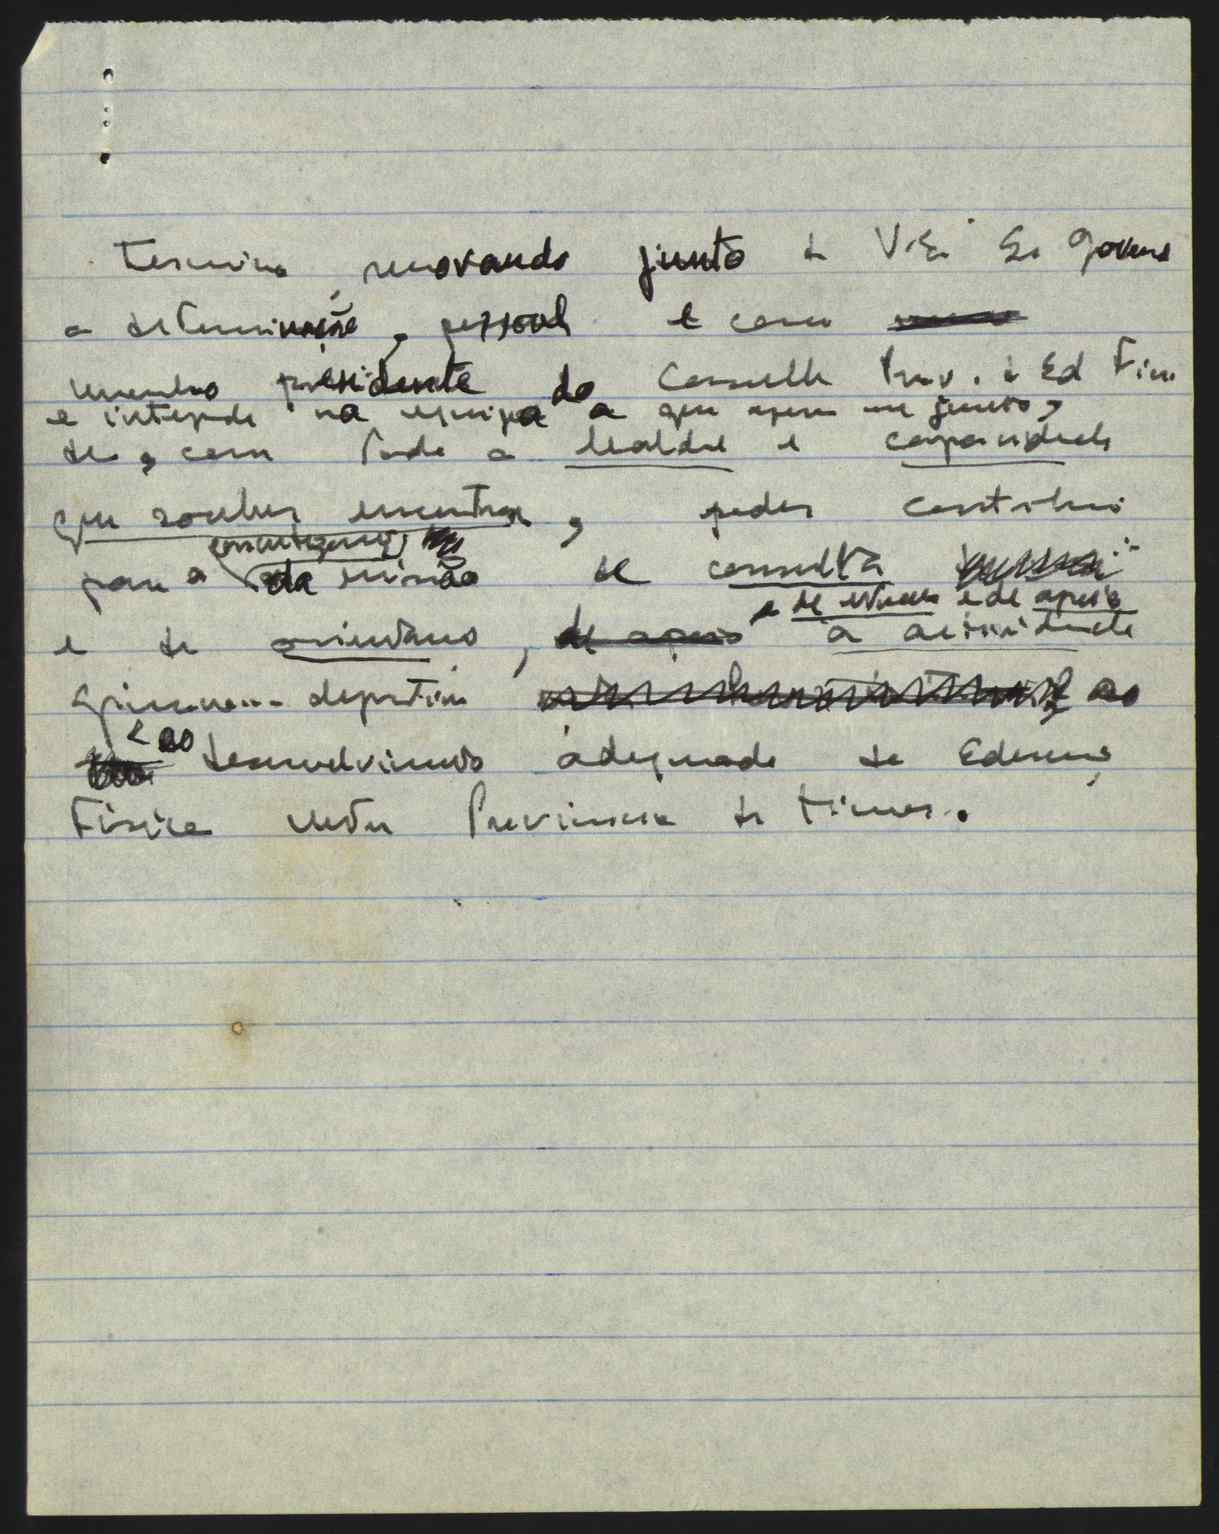 Termino, renovando junto de V. Exª Sr. Governa
a determinação, pessoal e como
membro presidente do Conselho Prov. de Ed Física
e integrado na equipa a que agora me junto,
de, com toda a lealdade e capacidade
que souber encontrar, poder contribuir
para a concretização da missão de consulta
e de orientação, de apoio e de estudo e de apoio à actividade
gimno-desportiva ao
e ao desenvolvimento adequado da Educação
Física nesta Província de Timor.